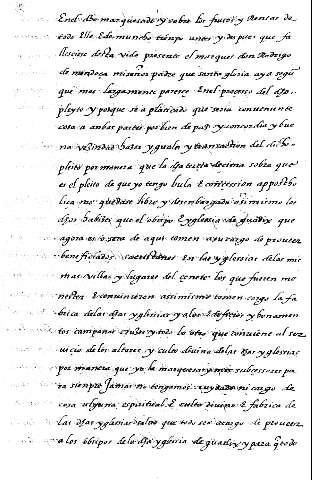 En el dho marquesado y sobre los frutos y Rentas de
todo Ello E de mucho tienpo antes y despues que fa
llesciese desta vida presente el marques don Rodrigo
de mendoça mi señor padre que santa gloria aya segũ
que mas largamente parece En el proceso del dho
pleyto y porque se a platicado que seria conveniente
cosa a ambas partes por bien de paz y concordia y bue
na vezindad hazer yguala y transacion del dicho
pleito por manera que la dha tercia decima sobre que
es el pleito de que yo tengo bula E concession appostho
lica me quedase libre y desenbargada assimismo los
dhos habites que el obispo E yglesia de guadix que
agora es o sera de aqui tomen a su cargo de proveer
beneficiados sacristanes En las yglesias de las mis
mas villas y lugares del cenete los que fueren me
nester E convinieren assimismo tomen cargo la fa
brica de las dhas yglesias y a los Edificios y hornamen
tos campanas cruzes y todo lo otro que conviene al ser
vicio de los altares y culto divino de las dhas yglesias
por manera que yo la marquesa y mis subcessores pa
ra siempre Jamas no tengamos cuydado ni cargo de
cosa alguna espiritual E culto divino E fabrica de
las dhas yglesias salvo que todo sea a cargo de proveer
a los obispos de la dha yglesia de guadix y para